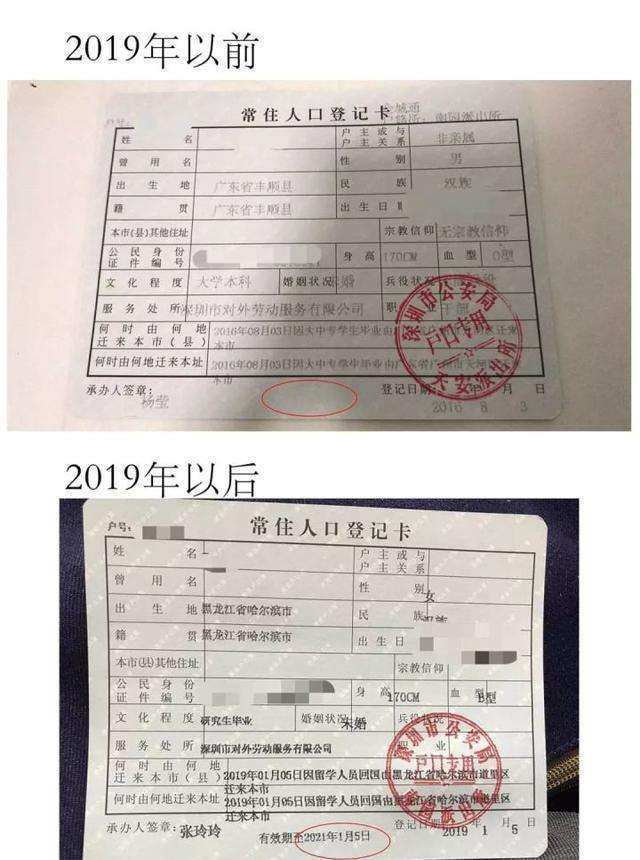 2019年以前
常住人口登记卡
户号:
姓 名
户主或与
户主关系
非亲属
曾用名
性 别
男
出生地
广东省丰顺县
民 族
汉族
籍 贯
广东省丰顺县
出生日
本市(县)其他住址
宗教信仰
无宗教信仰
公民身份
证件编号
身高
170CM
血型
O型
文化程度
大学本科
婚姻状况
兵役状况
服务处所
深圳市对外劳动服务有限公司
何时由何地
迁来本市(县)
2016年08月03日因大中专学生毕业由广东省广州市天河区迁来
本市
何时由何地迁来本址
2016年08月03日因大中专学生毕业由广东省广州市天河区迁来
本市
承办人签章:
杨莹
登记日期: 年 月 日
2016 8 3
深圳市公安局
户口专用
派出所
2019年以后
户号:
常住人口登记卡
姓 名
户主或与
户主关系
曾用名
性 别
女
出生地
黑龙江省哈尔滨市
民 族
汉族
籍 贯
黑龙江省哈尔滨市
出生日
本市(县)其他住址
宗教信仰
公民身份
证件编号
身高
170CM
血型
B型
文化程度
研究生毕业
婚姻状况
未婚
兵役状况
服务处所
深圳市对外劳动服务有限公司
职业
何时由何地
迁来本市(县)
2019年01月05日因留学人员回国由黑龙江省哈尔滨市道里区
迁来本市
何时由何地迁来本址
2019年01月05日因留学人员回国由黑龙江省哈尔滨市道里区
迁来本市
承办人签章:
张玲玲
有效期至2021年1月5日
登记日期: 年 月 日
2019 1 5
深圳市公安局
户口专用
派出所